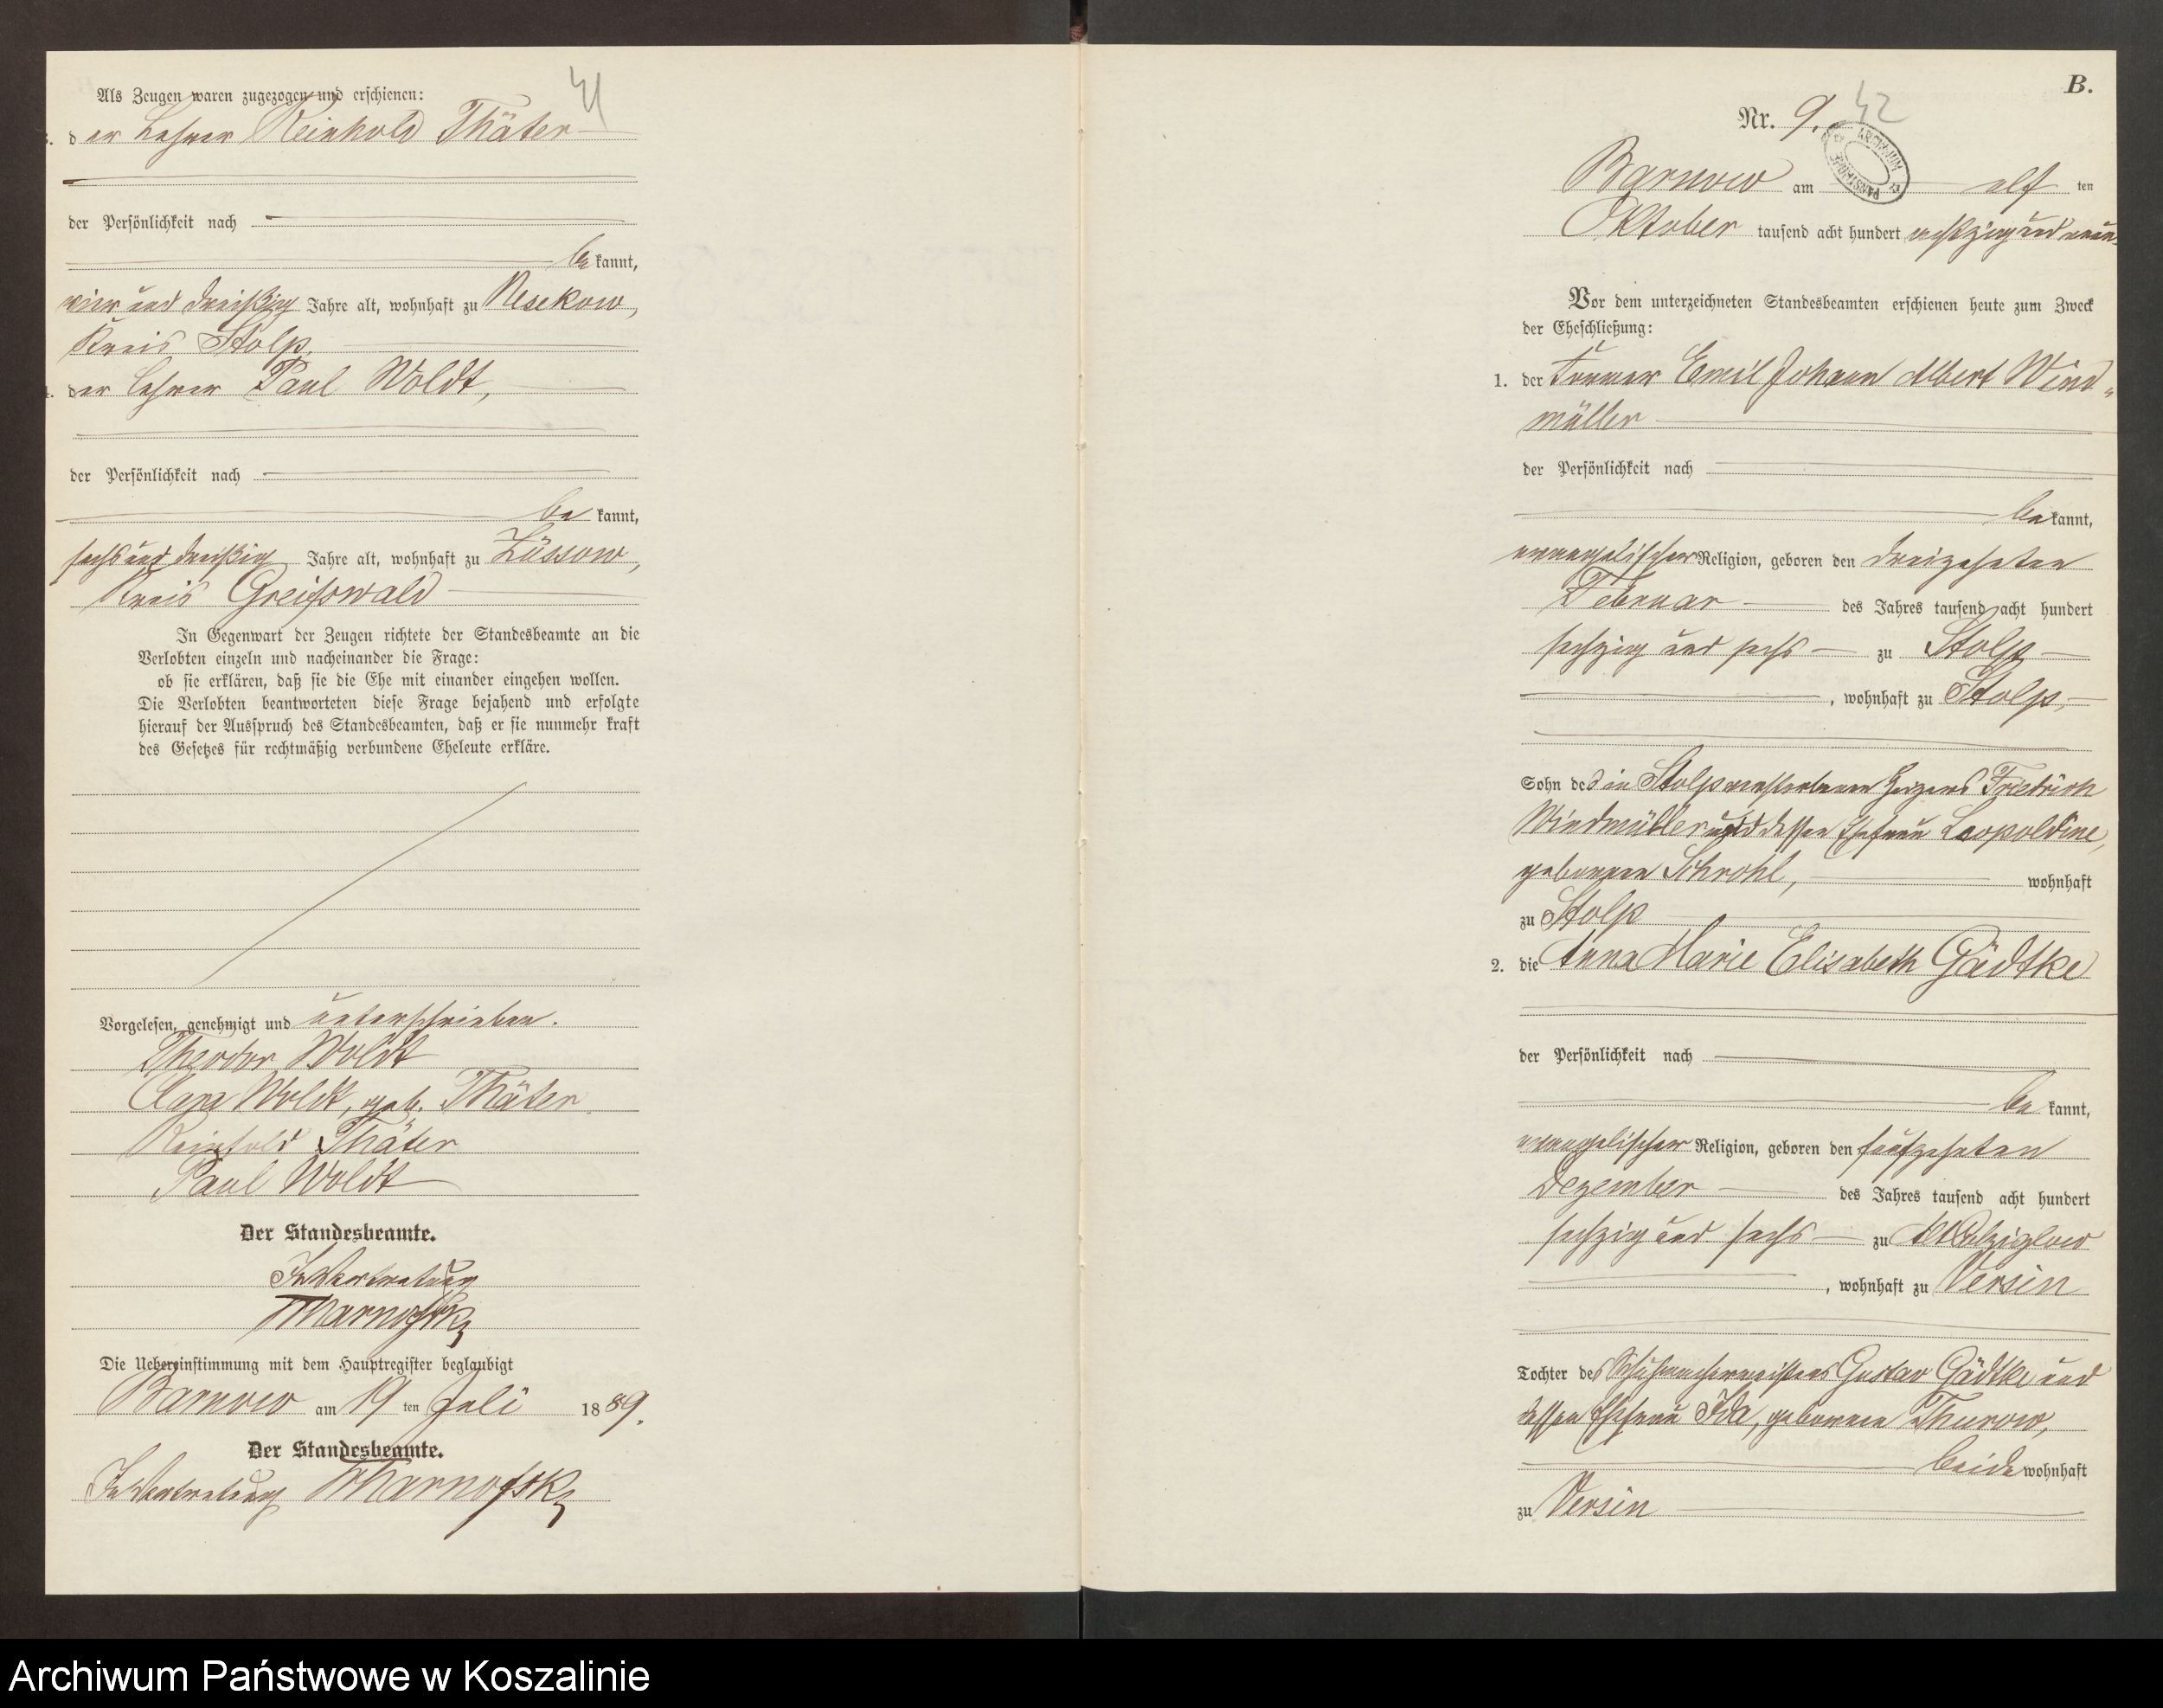 41
Als Zeugen waren zugezogen und erschienen:
3. der Lehrer Reinhold Thäter
der Persönlichkeit nach
bekannt,
vier und dreißig Jahre alt, wohnhaft zu Nesekow,
Kreis Stolp.
4. der Lehrer Paul Woldt,
der Persönlichkeit nach
bekannt,
sechs und dreißig Jahre alt, wohnhaft zu Züssow,
Kreis Greifswald
In Gegenwart der Zeugen richtete der Standesbeamte an die
Verlobten einzeln und nacheinander die Frage:
ob sie erklären, daß sie die Ehe mit einander eingehen wollen.
Die Verlobten beantworteten diese Frage bejahend und erfolgte
hierauf der Ausspruch des Standesbeamten, daß er sie nunmehr kraft
des Gesetzes für rechtmäßig verbundene Eheleute erkläre.
Vorgelesen, genehmigt und unterschrieben.
Theodor Woldt
Clara Woldt, geb. Thäter
Reinhold Thäter
Paul Woldt
Der Standesbeamte.
In Vertretung
Die Uebereinstimmung mit dem Hauptregister beglaubigt
Barnow am 19 ten Juli 1889.
Der Standesbeamte.
In Vertretung
B.
42
Nr. 9.
ARCHIWUM PAŃSTWOWE
Barnow am elf ten
Oktober tausend acht hundert achtzig und neun.
Vor dem unterzeichneten Standesbeamten erschienen heute zum Zweck
der Eheschließung:
1. der Emil Johann Albert Wind-
müller
der Persönlichkeit nach
bekannt,
evangelischer Religion, geboren den dreizehnten
Februar des Jahres tausend acht hundert
sechzig und sechs zu Stolp
, wohnhaft zu Stolp,
Sohn des in Stolp verstorbenen Friedrich
Windmüller und dessen Ehefrau Leopoldine,
geborenen Schrohl, wohnhaft
zu Stolp
2. die Anna Marie Elisabeth Gädtke
der Persönlichkeit nach
bekannt,
evangelischer Religion, geboren den fünfzehnten
Dezember des Jahres tausend acht hundert
sechzig und sechs zu Alt Colziglow
, wohnhaft zu Versin
Tochter des Schuhmachermeisters Gustav Gädtke und
dessen Ehefrau Ida, geborenen Thurow,
beide wohnhaft
zu Versin
Archiwum Państwowe w Koszalinie